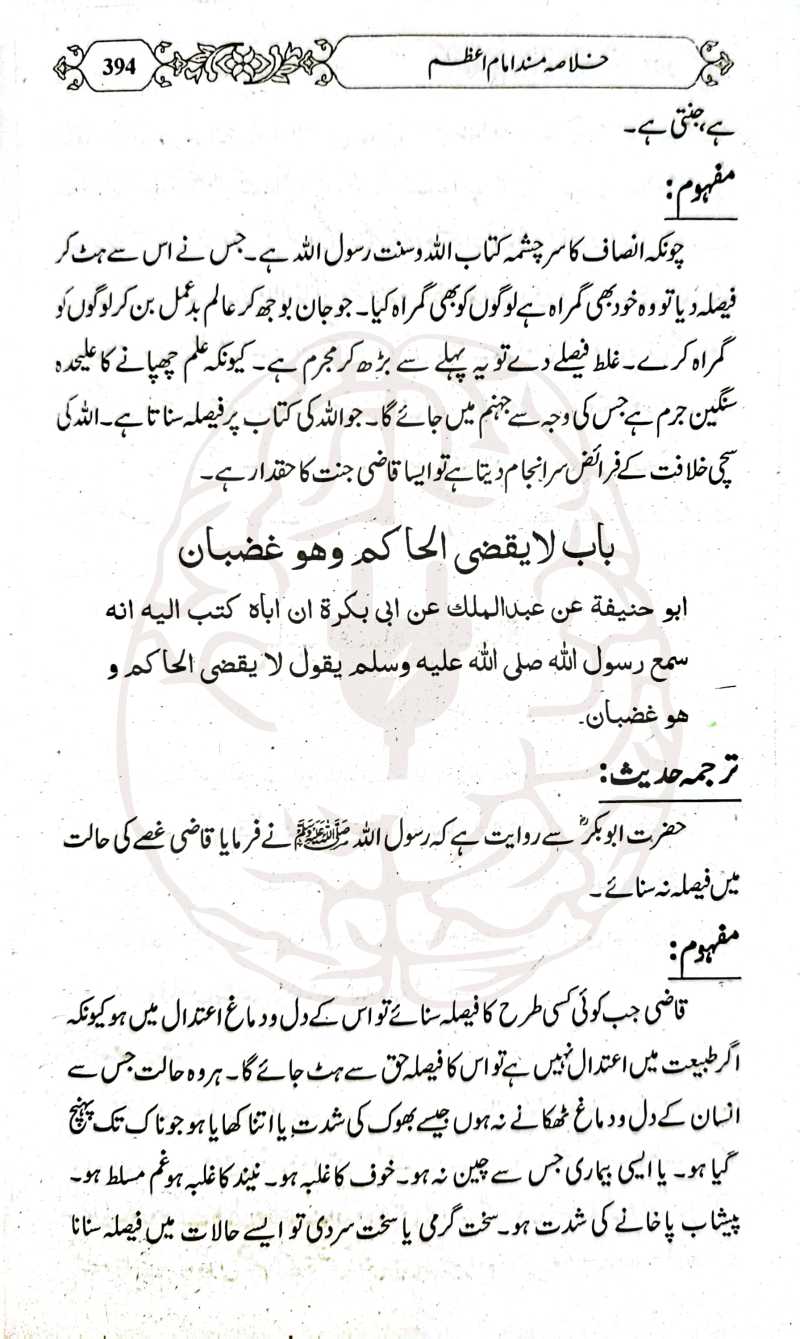 394
خلاصہ مسند امام اعظم
ہے، جنتی ہے۔
مفہوم:
چونکہ انصاف کا سرچشمہ کتاب اللہ و سنت رسول اللہ ہے۔ جس نے اس سے ہٹ کر
فیصلہ دیا تو وہ خود بھی گمراہ ہے لوگوں کو بھی گمراہ کیا۔ جو جان بوجھ کر عالم بدعمل بن کر لوگوں کو
گمراہ کرے۔ غلط فیصلے دے تو یہ پہلے سے بڑھ کر مجرم ہے۔ کیونکہ علم چھپانے کا علیحدہ
سنگین جرم ہے جس کی وجہ سے جہنم میں جائے گا۔ جو اللہ کی کتاب پر فیصلہ سناتا ہے۔ اللہ کی
سچی خلافت کے فرائض سرانجام دیتا ہے تو ایسا قاضی جنت کا حقدار ہے۔
باب لا یقضی الحاکم وهو غضبان
ابو حنیفة عن عبدالملك عن ابی بكرة ان اباہ كتب الیه انه
سمع رسول الله صلی الله علیه وسلم یقول لا یقضی الحاكم و
هو غضبان۔
ترجمہ حدیث:
حضرت ابوبکرؓ سے روایت ہے کہ رسول اللہ ﷺ نے فرمایا قاضی غصے کی حالت
میں فیصلہ نہ سنائے۔
مفہوم:
قاضی جب کوئی کسی طرح کا فیصلہ سنائے تو اس کے دل و دماغ اعتدال میں ہو کیونکہ
اگر طبیعت میں اعتدال نہیں ہے تو اس کا فیصلہ حق سے ہٹ جائے گا۔ ہر وہ حالت جس سے
انسان کے دل و دماغ ٹھکانے نہ ہوں جیسے بھوک کی شدت یا اتنا کھایا ہو جو ناک تک پہنچ
گیا ہو۔ یا ایسی بیماری جس سے چین نہ ہو۔ خوف کا غلبہ ہو۔ نیند کا غلبہ ہو غم مسلط ہو۔
پیشاب پاخانے کی شدت ہو۔ سخت گرمی یا سخت سردی تو ایسے حالات میں فیصلہ سنانا